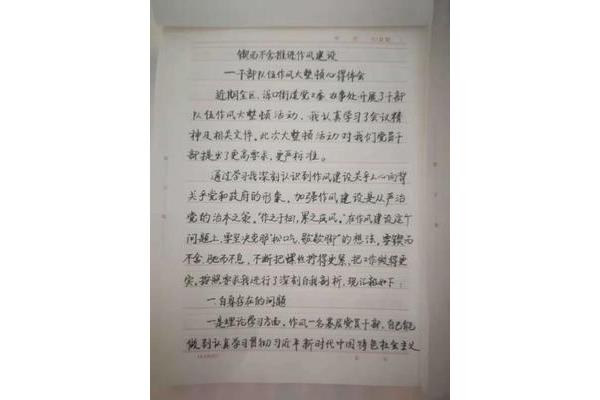 锲而不舍推进作风建设
——干部队伍作风大整顿心得体会
近期全区、洛口街道党工委、办事处开展了干部
队伍作风大整顿活动,我认真学习了会议精
神及相关文件。此次大整顿活动对我们党员干
部提出了更高要求,更严标准。
通过学习我深刻认识到作风建设关乎人心向背
关乎党和政府的形象。加强作风建设是从严治
党的治本之策。"作之于细,累之成风。"在作风建设这个
问题上,要坚决克服"松口气,歇歇脚"的想法。要锲而
不舍、驰而不息,不断把螺丝拧得更紧,把工作做得更
实。按照要求我进行了深刻自我剖析,现汇报如下:
一、自身存在的问题
一是理论学习方面。作为一名基层党员干部,自己能
做到认真学习贯彻习近平新时代中国特色社会主义